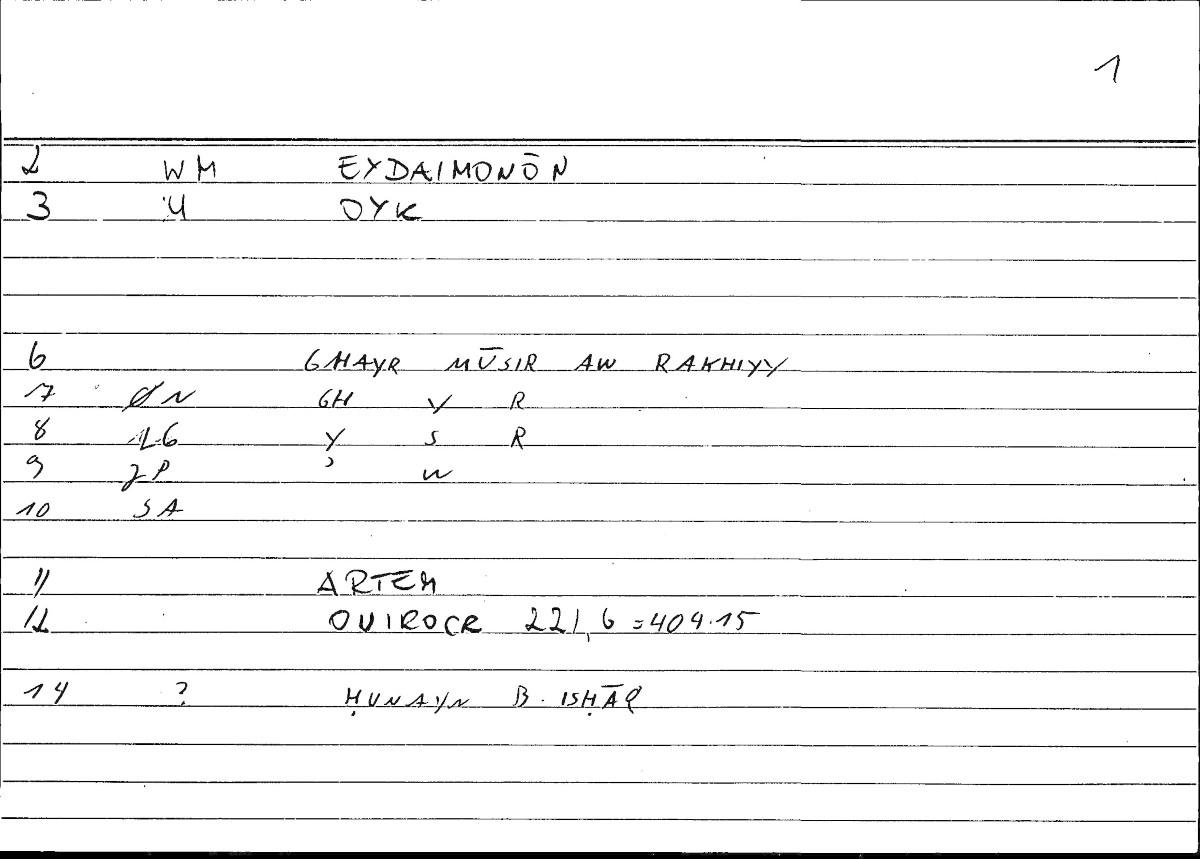 1
2 WM EYDAIMONŌN
3 Ч OYK
6 GHAYR MŪSIR AW RAKHIYY
7 ØN GH Y R
8 1L6 Y S R
9 JP ʾ W
10 SA
11 ARTEM
12 OVIROCR 221,6=404.15
14 ? ḤUNAYN B. ISḤĀQ